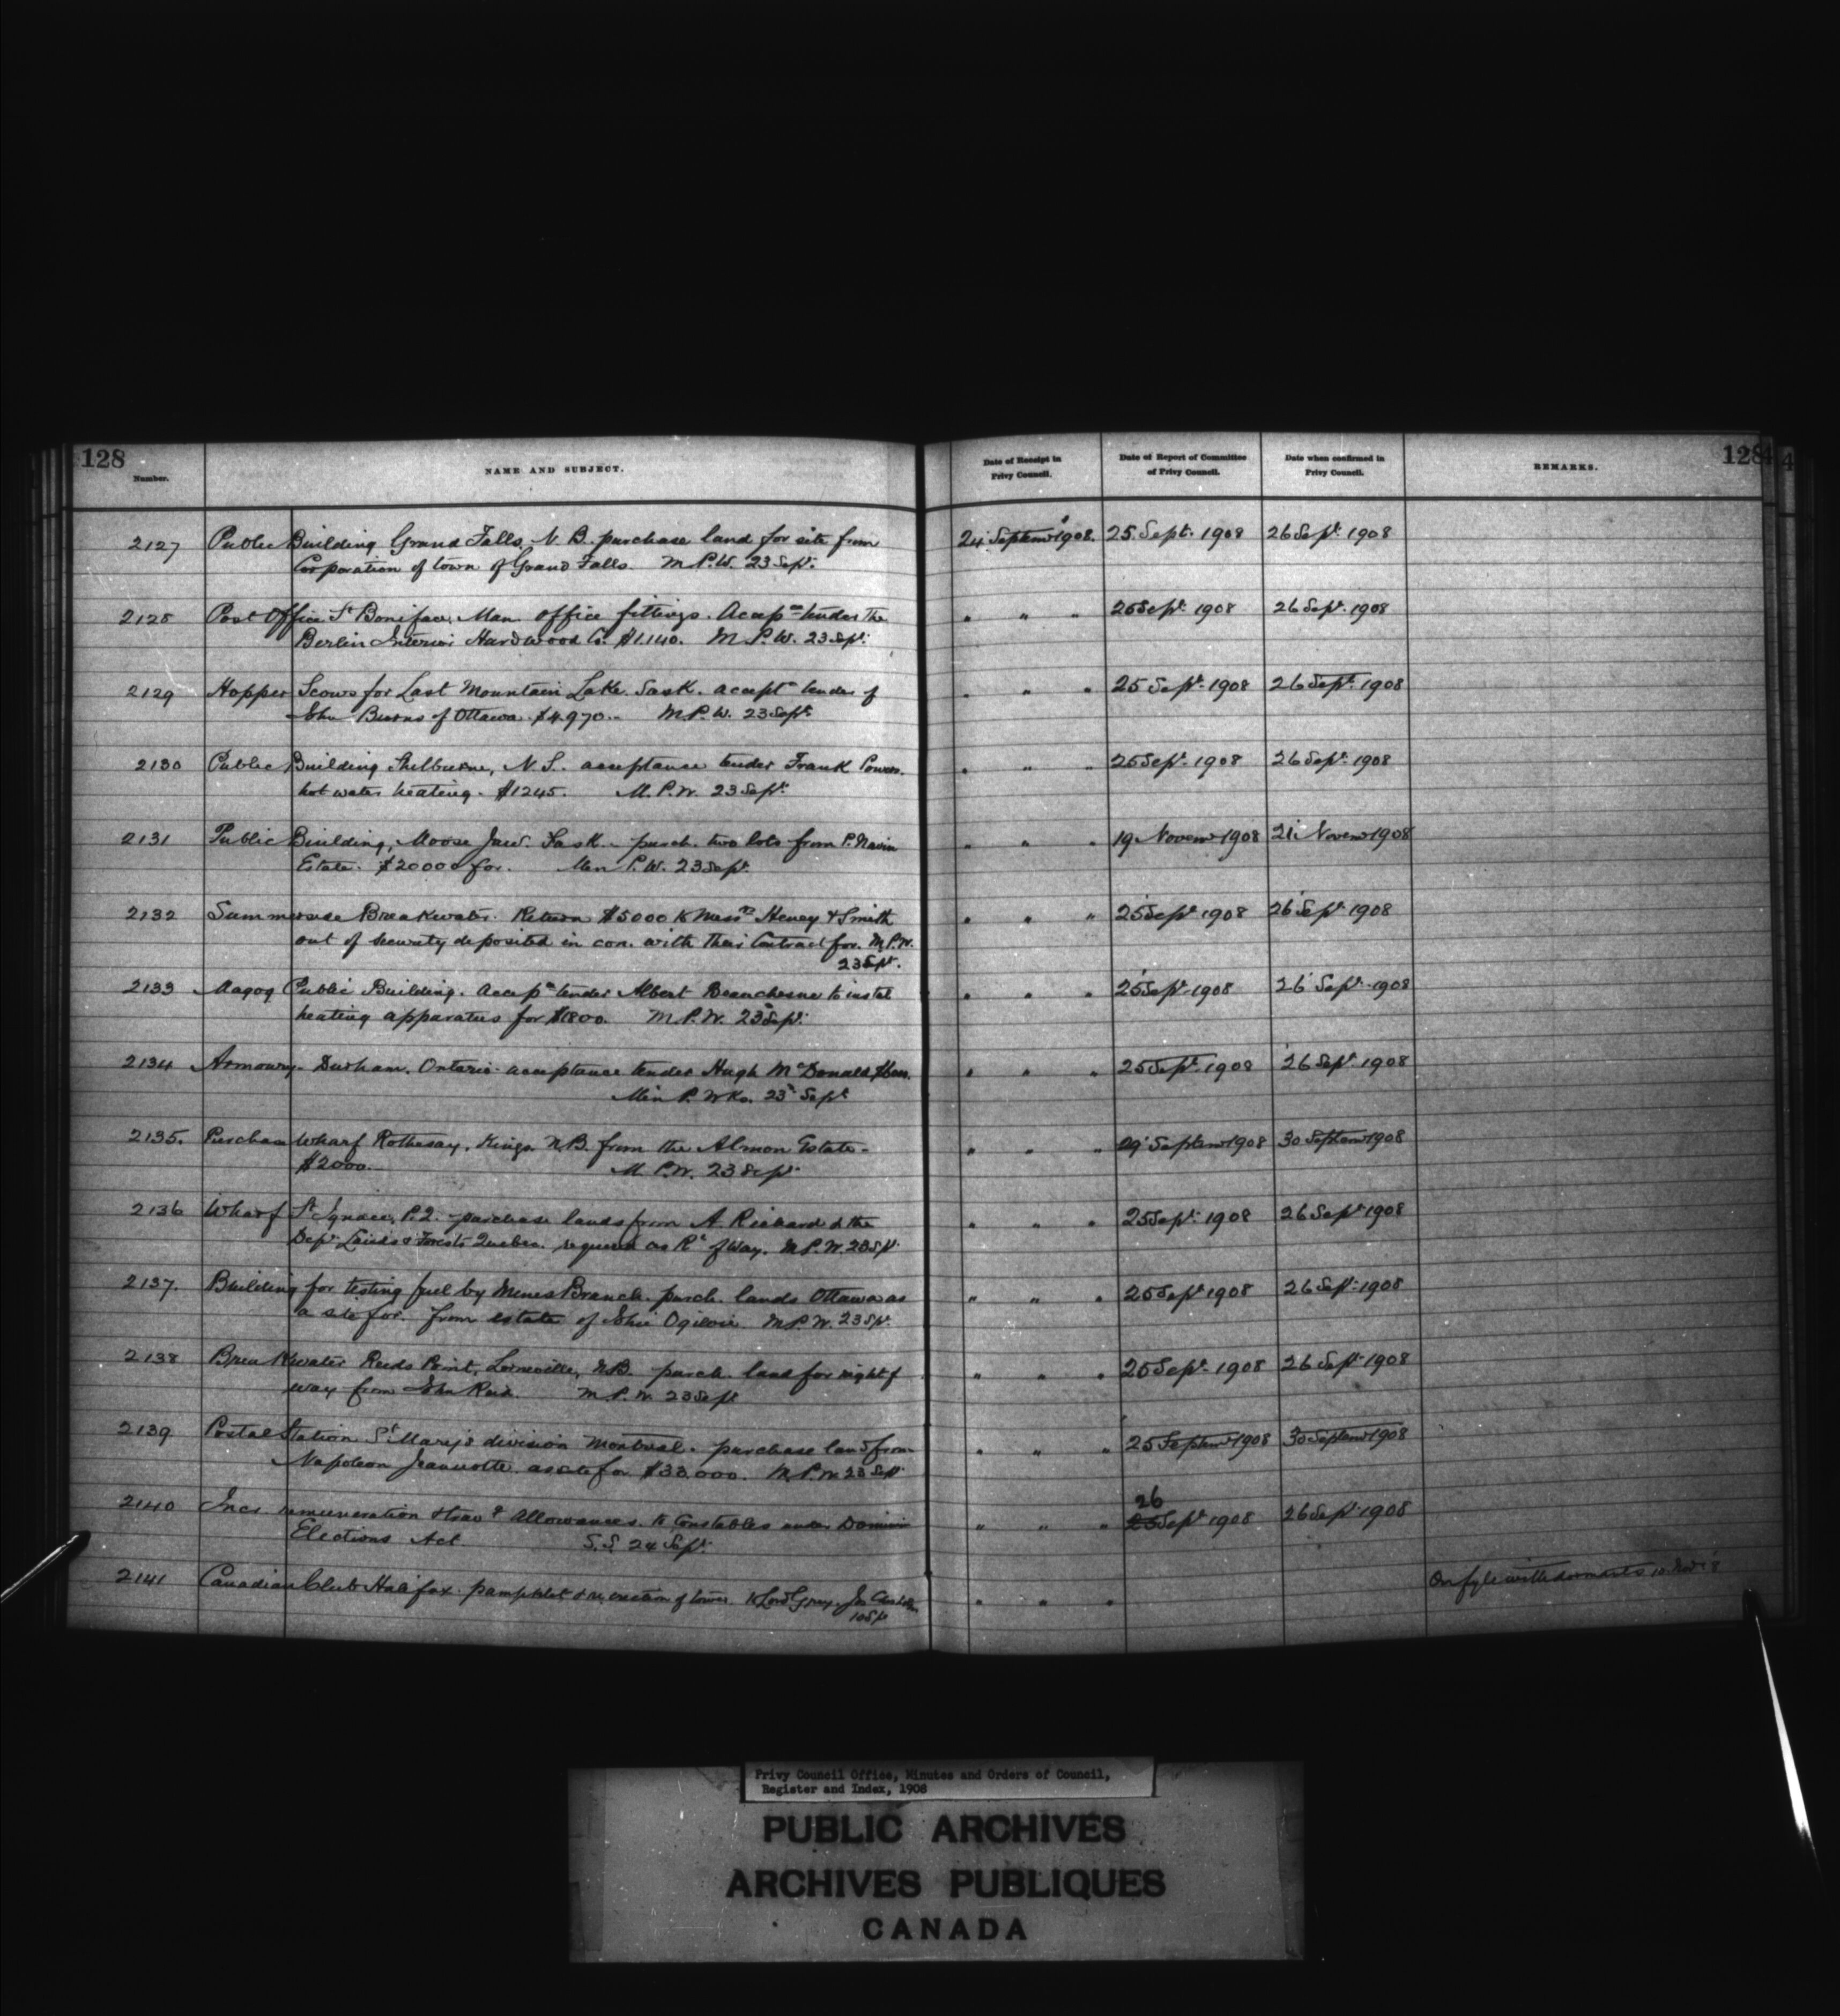 128
Number.
NAME AND SUBJECT.
Date of Receipt in
Privy Council.
Date of Report of Committee
of Privy Council.
Date when confirmed in
Privy Council.
REMARKS.
128
2127 Public Building Grand Falls, N. B. purchase land for site from 24 Septemr 1908. 25. Sept. 1908 26 Sept. 1908
Corporation of town of Grand Falls. M P. W. 23 Sept.
2128 Post Office St Boniface, Man. office fittings. Accepce tender The " " " 25 Sept. 1908 26 Sept. 1908
Berlin Interior Hardwood Co. $1.140. M. P. W. 23 Sept.
2129 Hopper Scows for Last Mountain Lake. Sask. accepte tender of " " " 25 Sept. 1908 26 Sept. 1908
John Burns of Ottawa. $4.970.- M. P. W. 23 Sept.
2130 Public Building Shelburne, N. S. acceptance tender Frank Powers. " " " 25 Sept. 1908 26 Sept. 1908
hot water heating. $1245. M. P. W. 23 Sept.
2131 Public Building, Moose Jaw. Sask. purch. two lots from P. Navin " " " 19 Novemr 1908 21 Novemr 1908
Estate. $20000 for. Min P. W. 23 Sept.
2132 Summerside Breakwater. Return $5000 to Messrs Heney & Smith " " " 25 Sept 1908 26 Sept 1908
out of security deposited in con. with their Contract for. M. P. W.
23 Sept.
2133 Magog Public Building. Accepce tender Albert Beauchesne to instal " " " 25 Sept. 1908 26 Sept. 1908
heating apparatus for $1800. M. P. W. 23 Sept.
2134 Armoury. Durham. Ontario. acceptance tender Hugh McDonald " " " 25 Sept. 1908 26 Sept. 1908
Min P. Wks. 23 Sept
2135. Purchase Wharf Rothesay, Kings N.B. from the Almon Estate. " " " 29 Septemr 1908 30 Septemr 1908
$2000. M. P. W. 23 Sept
2136 Wharf St Ignace, P.Q. purchase lands from A. Richard & the " " " 25 Sept. 1908 26 Sept 1908
Dept Lands & Forests Quebec. required as Rt of Way. M. P. W. 23 Sept.
2137. Building for testing fuel by Mines Branch. purch. lands Ottawa as " " " 25 Sept 1908 26 Sept. 1908
a site for. from estate of Ogilvie M. P. W. 23 Sept.
2138 Breakwater Reeds Point, Lorneville, N.B. purch. land for right of " " " 25 Sept. 1908 26 Sept. 1908
way from John Reed. M. P. W. 23 Sept
2139 Postal Station St Mary's division Montreal. purchase land from " " " 25 Septemr 1908 30 Septemr 1908
Napoleon Jeannotte. as site for $33.000. M. P. W. 23 Sept
26
2140 Incr remuneration & travg Allowances. to Constables under Dominion " " " 25 Sept 1908 26 Sept. 1908
Elections Act. S.S. 24 Sept.
2141 Canadian Club Halifax. pamphlet & re erection of tower to Lord Grey. " " " On fyle with dormants 10 Nov 8
10 Sept
Privy Council Office, Minutes and Orders of Council,
Register and Index, 1908
PUBLIC ARCHIVES
ARCHIVES PUBLIQUES
CANADA